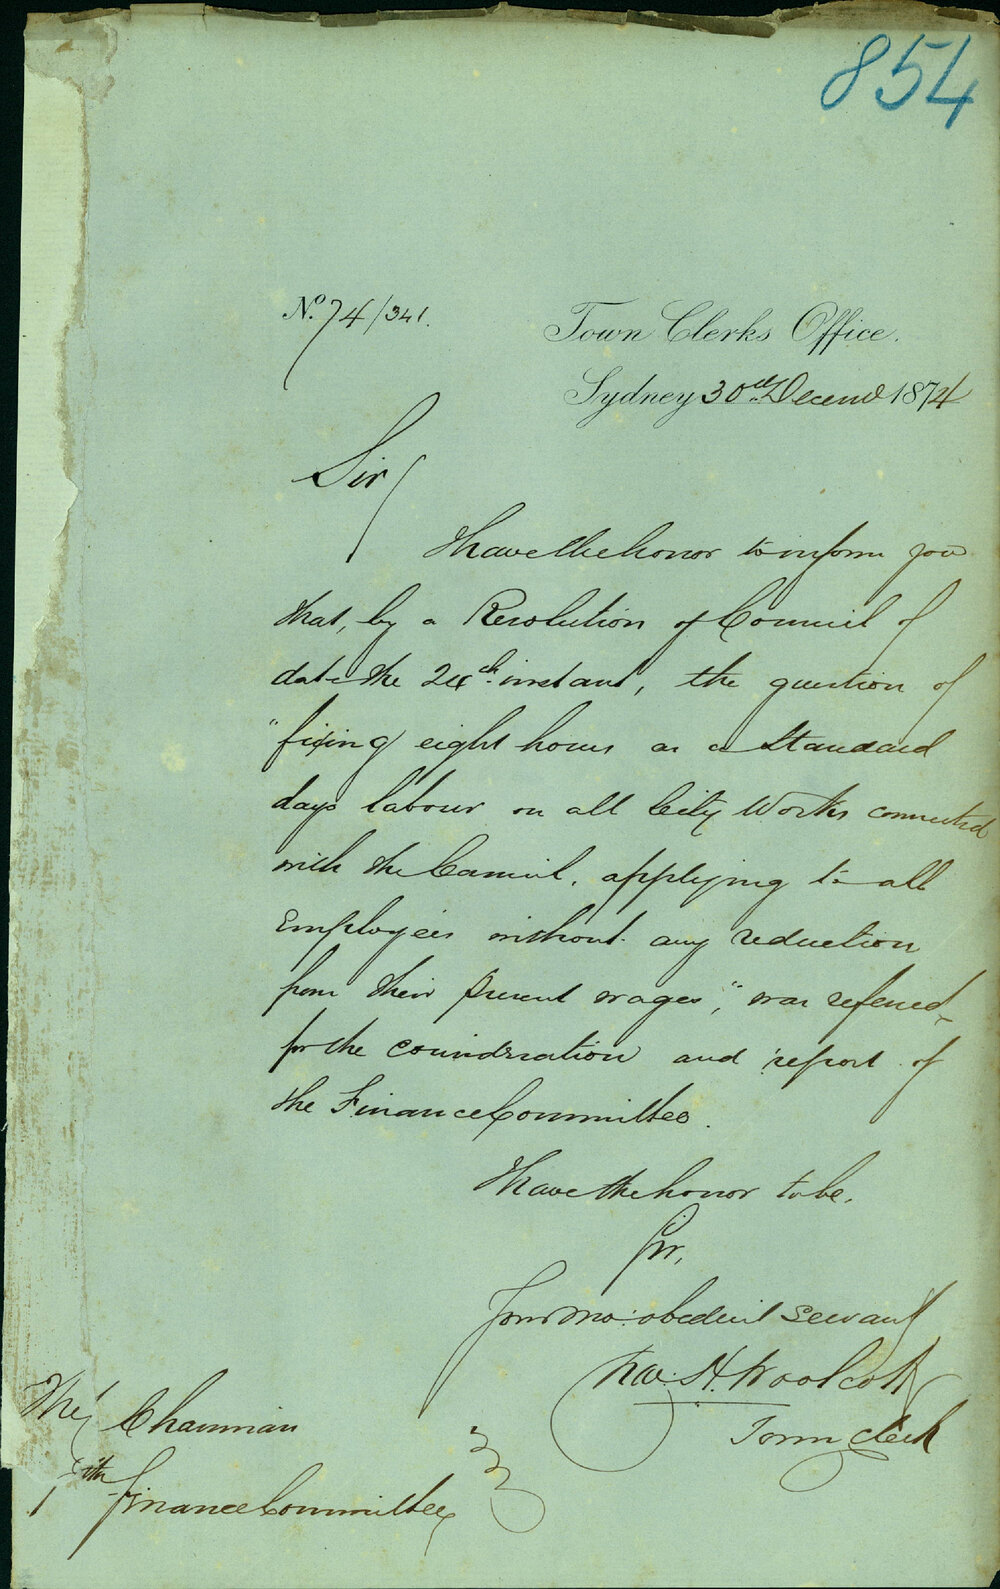 854
No. 74/341.
Town Clerks Office.
Sydney 30th Decemr 1874
Sir/
I have the honor to inform you
that, by a Resolution of Council of
date the 24th instant, the question of
"fixing eight hours as a Standard
days labour on all City Works connected
with the Council, applying to all
Employees without any reduction
from their present wages", was referred
for the consideration and report of
the Finance Committee.
I have the honor to be,
Sir,
Your mo: obedient servant
Chas. H. Woolcott
Town Clerk
The Chairman
of the Finance Committee